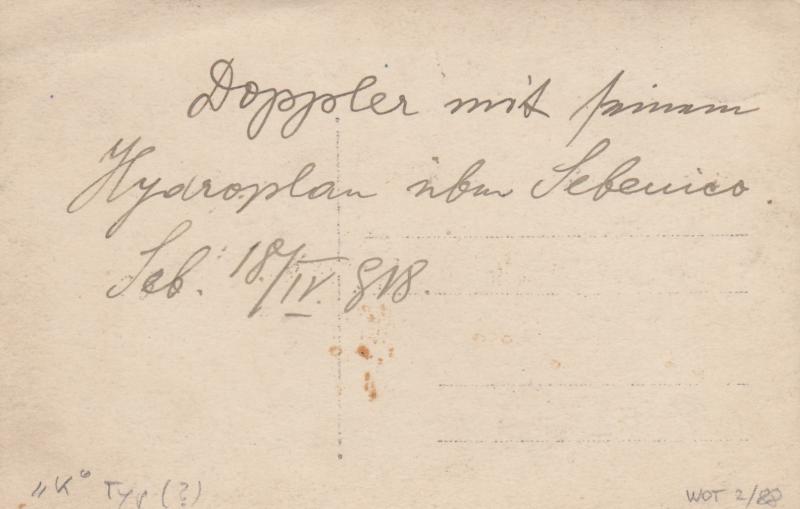 Doppler mit seinem
Hydroplan über Sebenico.
Seb. 18/IV. 918.
„K“ Typ (?)
WOT 2/88